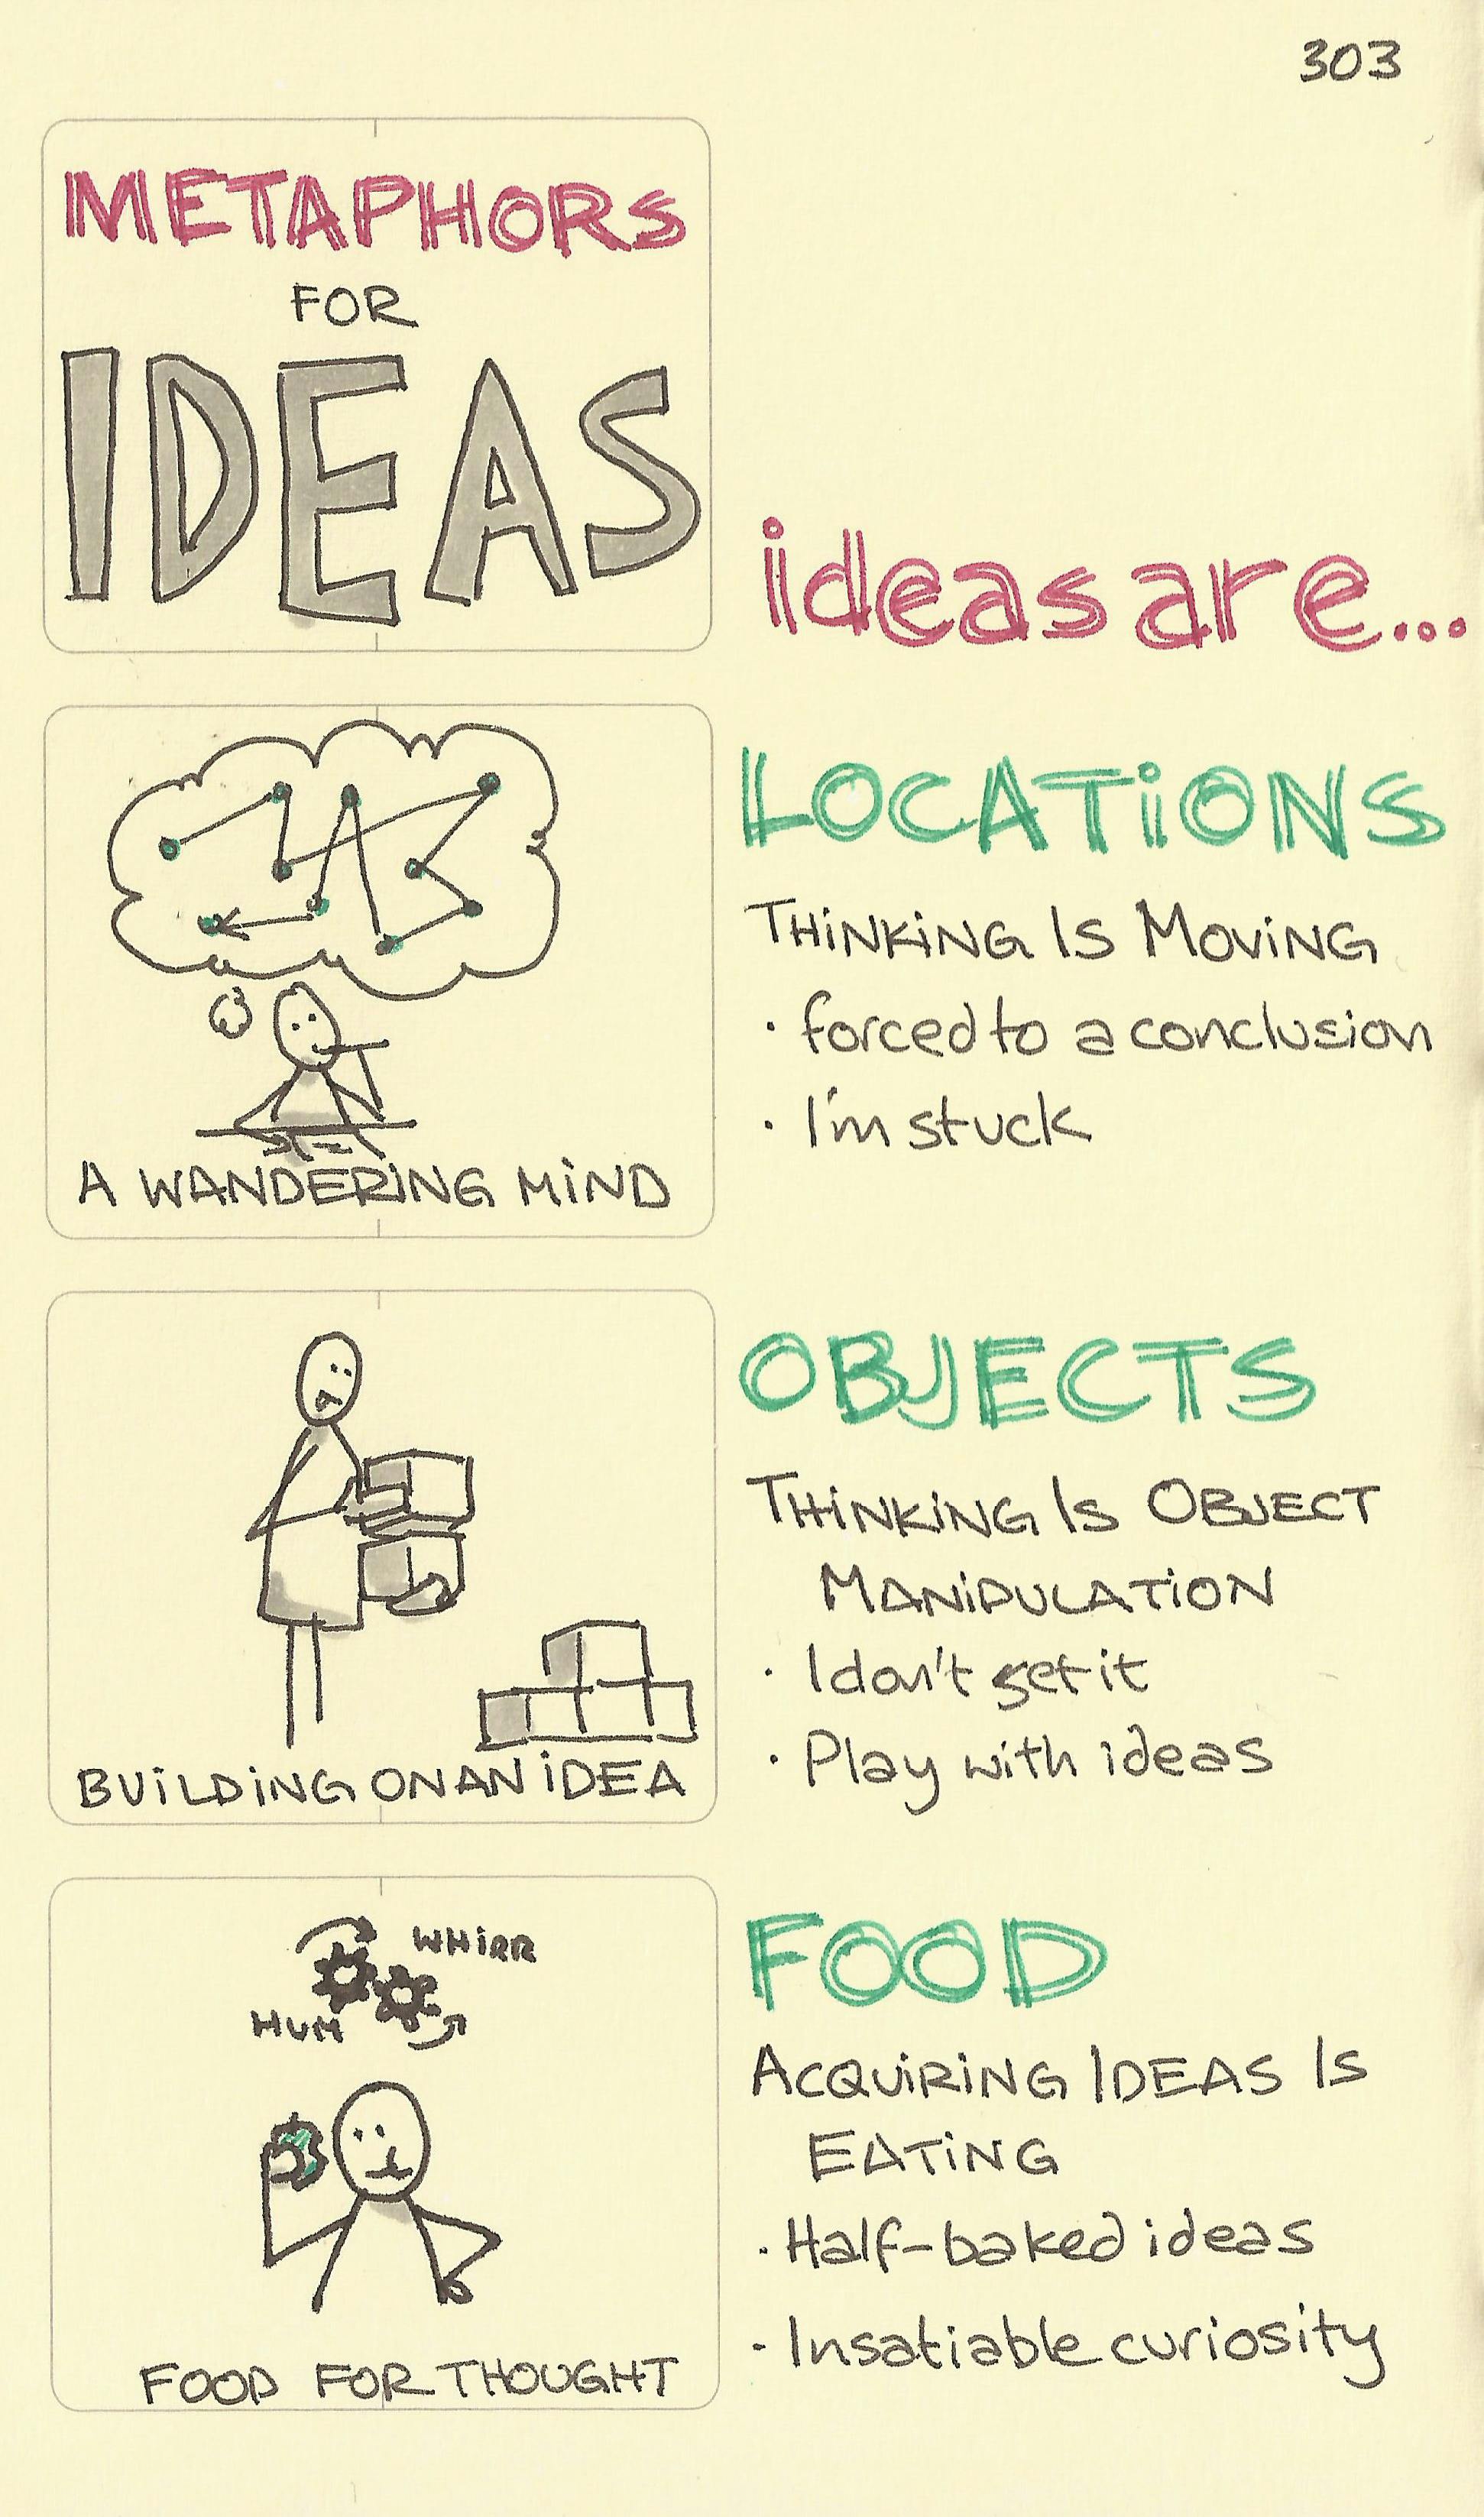 303
METAPHORS
FOR
IDEAS
ideas are...
LOCATIONS
THINKING IS MOVING
· forced to a conclusion
· I'm stuck
A WANDERING MIND
OBJECTS
THINKING IS OBJECT
MANIPULATION
· I don't get it
· Play with ideas
BUILDING ON AN IDEA
FOOD
ACQUIRING IDEAS IS
EATING
· Half-baked ideas
· Insatiable curiosity
WHIRR
HUM
FOOD FOR THOUGHT